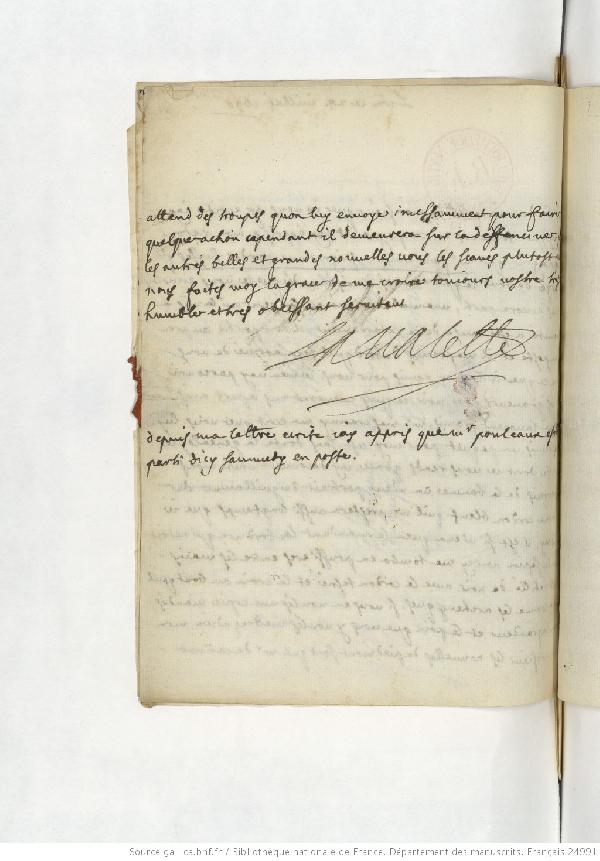 attend des troupes quon luy envoye incessamment pour faire
quelque action cependant il demeurera sur la deffencive
les autres belles et grandes nouvelles vous les scaves plutost
nous faites moy la grace de me croire toujours vostre tres
humble et tres obeissant serviteur
La Valette
depuis ma lettre ecrite iay appris que mr est
parti dicy en poste.
Source gallica.bnf.fr / Bibliothèque nationale de France. Département des manuscrits. Français 24991